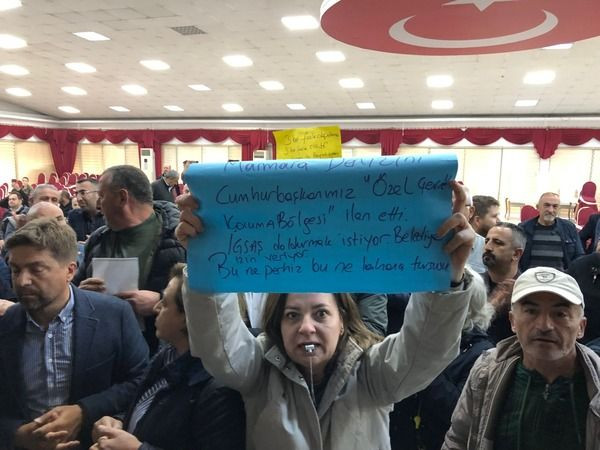 Marmara Denizini
Cumhurbaşkanımız "Özel Çevre
Koruma Bölgesi" ilan etti.
İGSAŞ doldurmak istiyor. Belediye
izin veriyor
Bu ne perhiz bu ne lahana turşusu